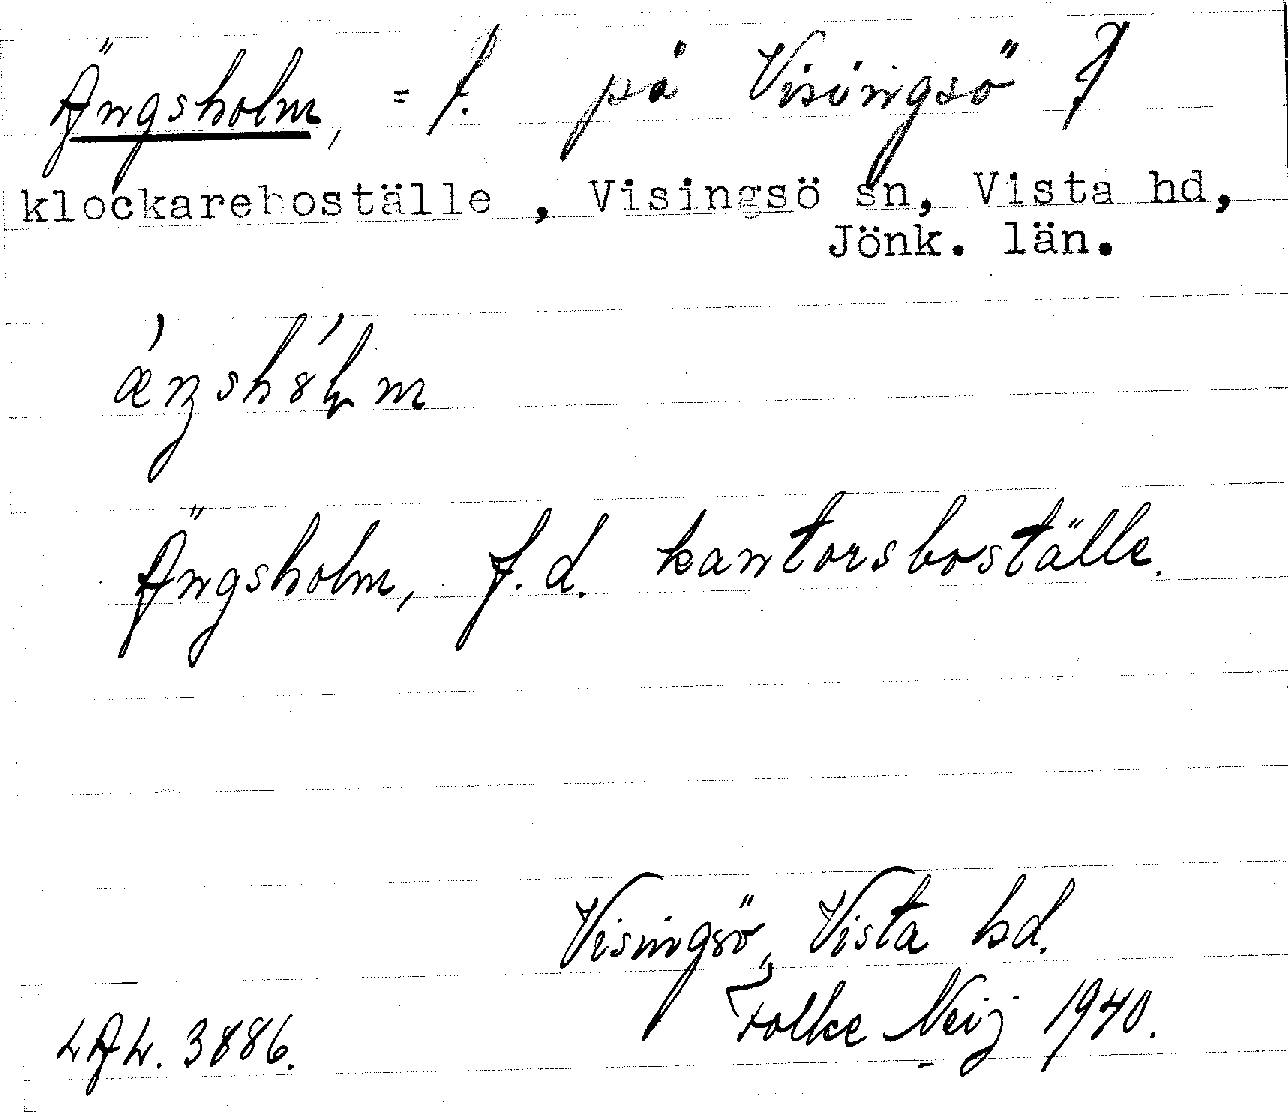 Ängsholm, = f. på Visingsö
klockareboställe , Visingsö sn, Vista hd,
Jönk. län.
Ängsholm, f.d. kantorsboställe.
Visingsö, Vista hd.
Folke Neij 1940.
LAL. 3886.